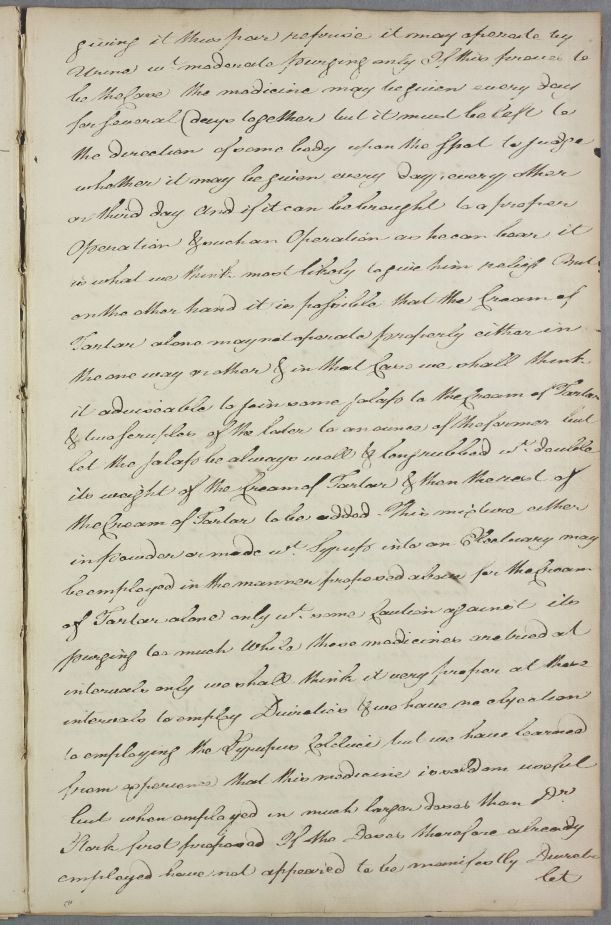 giving it thus par reprise it may operate by
Urine wt. moderate purging only If this proves to
be the Case the medicine may be given every day
for several (days together but it must be left to
the direction of some body upon the Spot to judge
whether it may be given every day, every other
or third day And if it can be brought to a proper
Operation & such an Operation as he can bear it
is what we think most likely to give him relief But
on the other hand it is possible that the Cream of
Tartar alone may not operate properly either in
the one way or other & in that Case we shall think
it adviseable to join some Jalap to the Cream of Tartar
& two scruples of the later to an ounce of the former but
let the Jalap be always well & long rubbed wt. double
its weight of the Cream of Tartar & then the rest of
the Cream of Tartar to be added - This mixture either
in Powder or made wt. Syrup into an Electuary may
be employed in the manner proposed above for the Cream
of Tartar alone only wt. some Caution against its
purging too much While these medicines are used at
intervals only we shall think it very proper at these
intervals to employ Diuretics & we have no objection
to employing the Syrupus Colchici but we have learned
from experience that this medicine is seldom useful
but when employed in much larger doses than Dr.
Stork first proposed If the Doses therefore already
employed have not appeared to be manifestly Diuretic
let